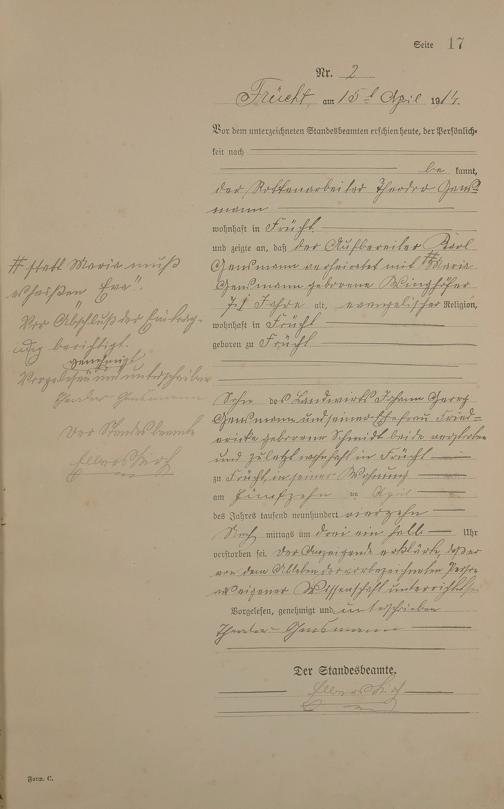 Seite 17
Nr. 2
Frücht, am 15t April 1914.
Vor dem unterzeichneten Standesbeamten erschien heute, der Persönlich-
keit nach
be kannt,
der Rottenarbeiter Theodor Gens-
mann
wohnhaft in Frücht
und zeigte an, daß der Aufbereiter Karl
Gensmann verheiratet mit # Maria
Gensmann geborene
71 Jahre alt, evangelischer Religion,
wohnhaft in Frücht
geboren zu Frücht
Sohn des Landwirts Johann Georg
Gensmann und seiner Ehefrau Fried-
ericke geborene Schmidt beide verstorben
und zuletzt wohnhaft in Frücht
zu Frücht, in seiner Wohnung
am fünfzehn ten April
des Jahres tausend neunhundert vierzehn
Nach mittags um drei ein halb Uhr
verstorben sei. Der Anzeigende erklärte, daß er
von dem Ableben des vorbezeichneten
aus eigener Wissenschaft unterrichtet sei
Vorgelesen, genehmigt und unterschrieben
Theodor Gensmann
Der Standesbeamte.
# statt Maria muß
es heißen "Eva".
Vor Abschluß der Eintrag-
ung berichtigt.
genehmigt
Vorgelesen und unterschrieben
Theodor Gensmann
Der Standesbeamte
Form. C.